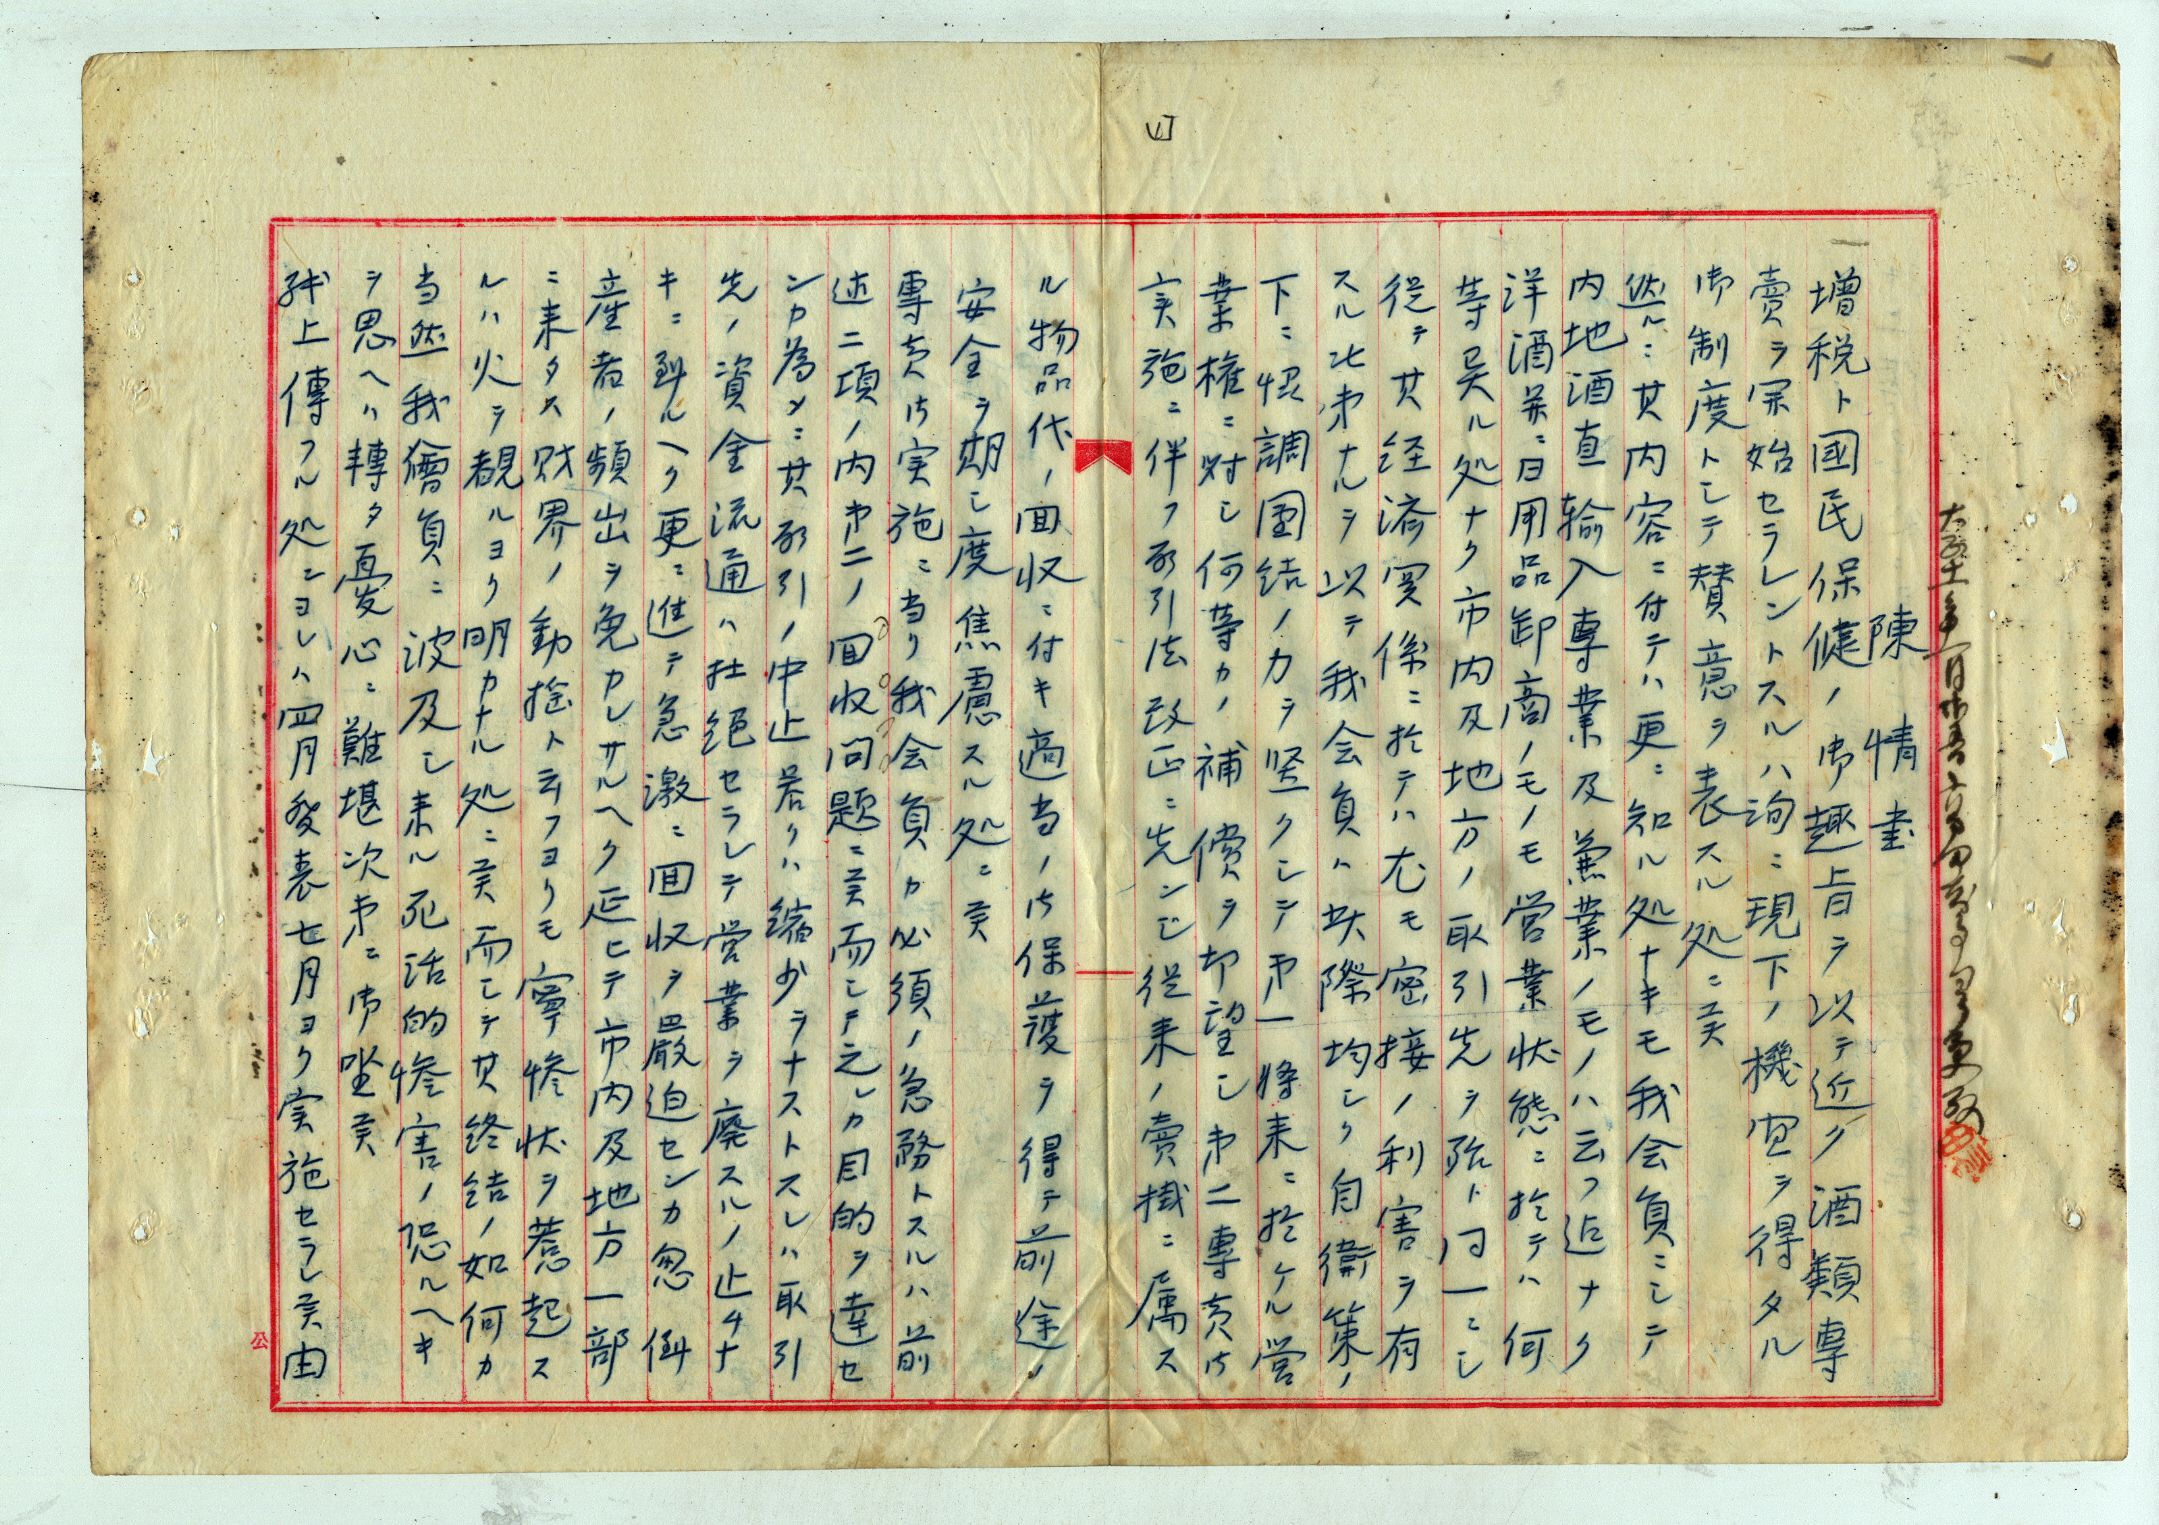 陳情書
増税ト國民保健ノ御趣旨ヲ以テ近ク酒類專
賣ヲ開始セラレントスルハ洵ニ現下ノ機宜ヲ得タル
御制度トシテ賛意ヲ表スル処ニ候
然ルニ其内容ニ付テハ更ニ知ル処ナキモ我会員ニシテ
内地酒直輸入專業及兼業ノモノハ云フ迄ナク
洋酒並ニ日用品卸商ノモノモ営業状態ニ於テハ何
等異ル処ナク市内及地方ノ取引先ヲ殆ト同一ニシ
従テ其経済関係ニ於テハ尤モ密接ノ利害ヲ有
スル次第ナルヲ以テ我会員ハ此際均シク自衛策ノ
下ニ協調団結ノ力ヲ堅クシテ第一將来ニ於ケル営
業権ニ対シ何等カノ補償ヲ切望シ第二專売法
実施ニ伴フ取引法改正ニ先ンジ従来ノ賣掛ニ属ス
ル物品代ノ回収ニ付キ適当ノ法保護ヲ得テ前途ノ
安全ヲ期シ度焦慮スル処ニ候
專売法実施ニ当リ我会員カ必須ノ急務トスルハ前
述二項ノ内第二ノ回収問題ニ候而シテ之レカ目的ヲ達セ
ンカ為メニ其取引ノ中止若クハ縮少ヲナストスレハ取引
先ノ資金流通ハ杜絶セラレテ営業ヲ廃スルノ止ムナ
キニ到ルヘク更ニ進テ急激ニ回収ヲ厳迫センカ忽倒
産者ノ頻出ヲ免カレサルヘク延ヒテ市内及地方一部
ニ来タス財界ノ動揺ト云フヨリモ寧惨状ヲ惹起ス
ルハ火ヲ覩ルヨリ明カナル処ニ候而シテ其終結ノ如何カ
当然我會員ニ波及シ来ル死活的惨害ノ恐ルヘキ
ヲ思ヘハ轉タ憂心ニ難堪次第ニ御座候
紙上傳フル処ニヨレハ四月発表七月ヨリ実施セラレ候由
公